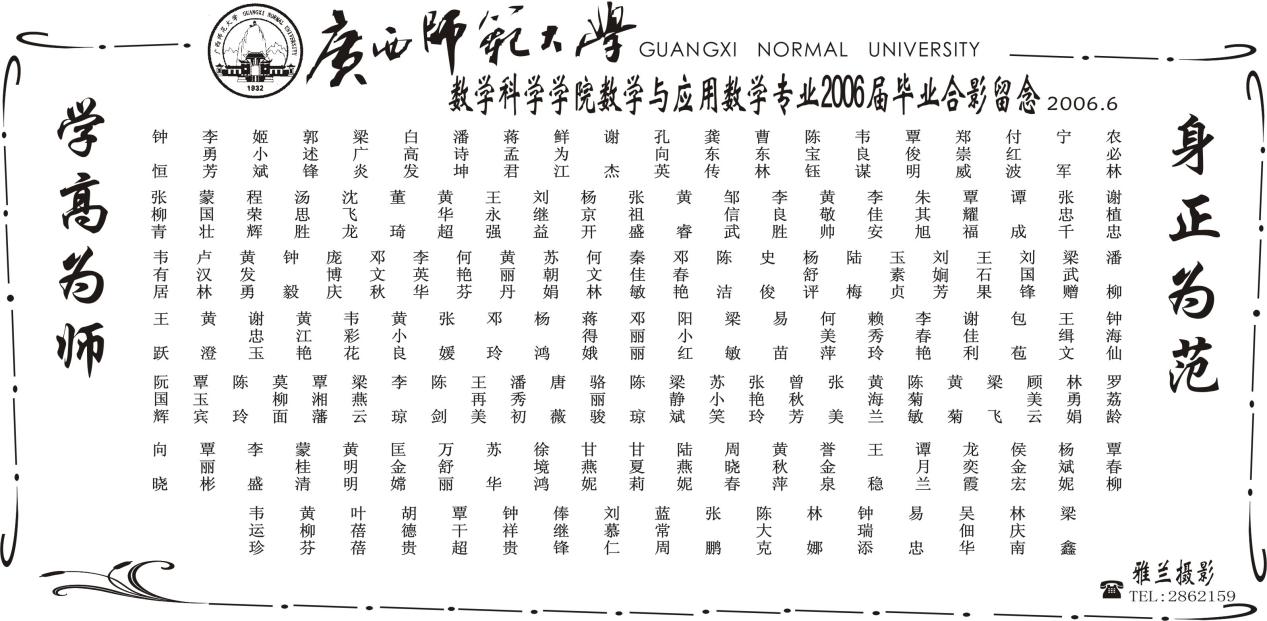 廣西師範大學 GUANGXI NORMAL UNIVERSITY
数学科学学院数学与应用数学专业2006届毕业合影留念 2006.6
学高为师
身正为范
广西师范大学 GUANGXI NORMAL UNIVERSITY
1932
钟恒 李勇芳 姬小斌 郭述锋 梁广炎 白高发 潘诗坤 蒋孟君 鲜为江 谢杰 孔向英 龚东传 曹东林 陈宝钰 韦良谋 覃俊明 郑崇威 付红波 宁军 农必林
张柳青 蒙国壮 程荣辉 汤思胜 沈飞龙 董琦 黄华超 王永强 刘继益 杨京开 张祖盛 黄睿 邹信武 李良胜 黄敬帅 李佳安 朱其旭 覃耀福 谭成 张忠千 谢植忠
韦有居 卢汉林 黄发勇 钟毅 庞博庆 邓文秋 李英华 何艳芬 黄丽丹 苏朝娟 何文林 秦佳敏 邓春艳 陈洁 史俊 杨舒评 陆梅 玉素贞 刘娴芳 王石果 刘国锋 梁武赠 潘柳
王跃 黄澄 谢忠玉 黄江艳 韦彩花 黄小良 张媛 邓玲 杨鸿 蒋得娥 邓丽丽 阳小红 梁敏 易苗 何美萍 赖秀玲 李春艳 谢佳利 包苞 王缉文 钟海仙
阮国辉 覃玉宾 陈玲 莫柳面 覃湘藩 梁燕云 李琼 陈剑 王再美 潘秀初 唐薇 骆丽骏 陈琼 梁静斌 苏小笑 张艳玲 曾秋芳 张美 黄海兰 陈菊敏 黄菊 梁飞 顾美云 林勇娟 罗荔龄
向晓 覃丽彬 李盛 蒙桂清 黄明明 匡金嫦 万舒丽 苏华 徐境鸿 甘燕妮 甘夏莉 陆燕妮 周晓春 黄秋萍 誉金泉 王稳 谭月兰 龙奕霞 侯金宏 杨斌妮 覃春柳
韦运珍 黄柳芬 叶蓓蓓 胡德贵 覃干超 钟祥贵 俸继锋 刘慕仁 蓝常周 张鹏 陈大克 林娜 钟瑞添 易忠 吴佃华 林庆南 梁鑫
雅兰摄影
TEL:2862159